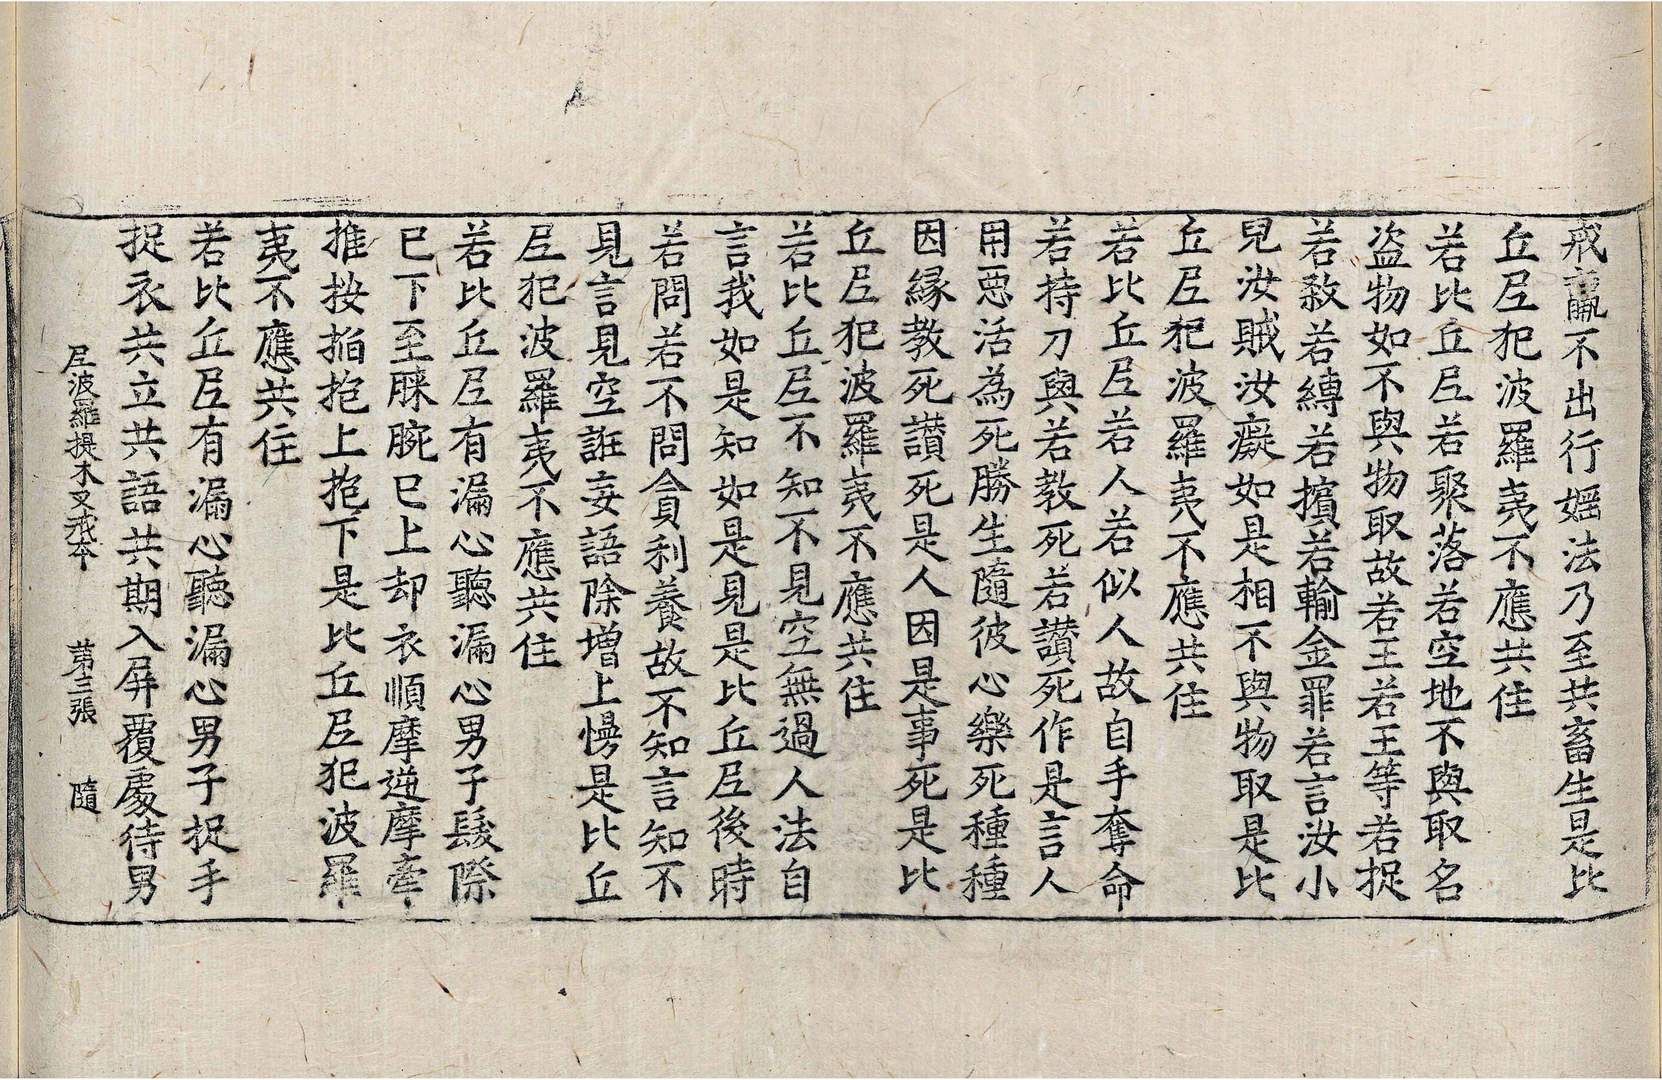 戒羸不出行婬法乃至共畜生是比
丘尼犯波羅夷不應共住
若比丘尼若聚落若空地不與取名
盜物如不與物取故若王若王等若捉
若殺若縛若擯若輸金罪若言汝小
兒汝賊汝癡如是相不與物取是比
丘尼犯波羅夷不應共住
若比丘尼若人若似人故自手奪命
若持刀與若教死若讃死作是言人
用惡活為死勝生隨彼心樂死種種
因緣教死讃死是人因是事死是比
丘尼犯波羅夷不應共住
若比丘尼不知不見空無過人法自
言我如是知如是見是比丘尼後時
若問若不問貪利養故不知言知不
見言見空誑妄語除增上慢是比丘
尼犯波羅夷不應共住
若比丘尼有漏心聽漏心男子髮際
已下至腂腕已上却衣順摩逆摩牽
推按掐抱上抱下是比丘尼犯波羅
夷不應共住
若比丘尼有漏心聽漏心男子捉手
捉衣共立共語共期入屏覆處待男
尼波羅提木叉戒本 第三張 隨